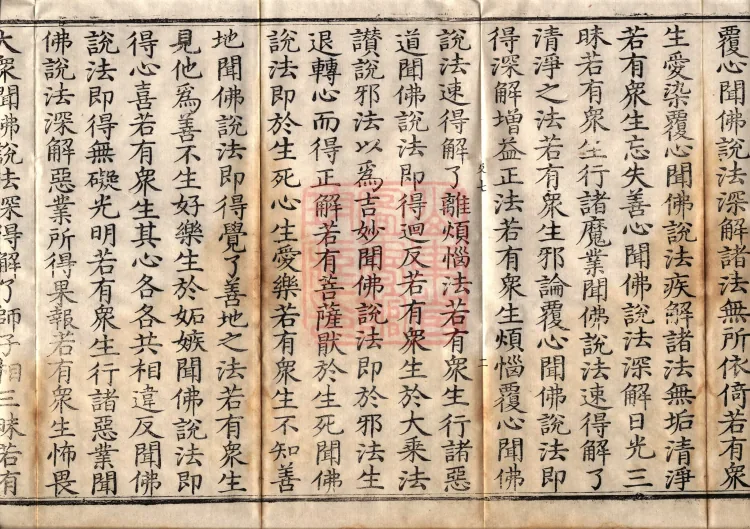 覆心聞佛說法深解諸法無所依倚若有衆
生愛染覆心聞佛說法疾解諸法無垢清淨
若有衆生忘失善心聞佛說法深解日光三
昧若有衆生行諸魔業聞佛說法速得解了
清淨之法若有衆生邪論覆心聞佛說法即
得深解增益正法若有衆生煩惱覆心聞佛
說法速得解了離煩惱法若有衆生行諸惡
道聞佛說法即得迴反若有衆生於大乘法
讃說邪法以爲吉妙聞佛說法即於邪法生
退轉心而得正解若有菩薩猒於生死聞佛
說法即於生死心生愛樂若有衆生不知善
地聞佛說法即得覺了善地之法若有衆生
見他爲善不生好樂生於妬嫉聞佛說法即
得心喜若有衆生其心各各共相違反聞佛
說法即得無礙光明若有衆生行諸惡業聞
佛說法深解惡業所得果報若有衆生怖畏
大衆聞佛說法深得解了師子相三昧若有